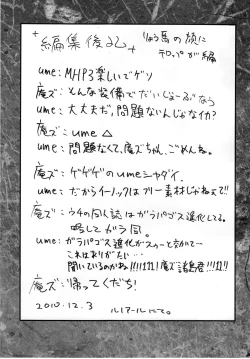 編集後記
ume：MHP3楽しいでゲソ
庵ズ：そんな装備でだいじょーぶなう
ume：大丈夫だ，問題ないんじゃなイカ？
庵ズ：ume△
ume：問題なくて，庵ズちゃん，ごめんね。
庵ズ：ゲゲゲのumeシャダイ．
ume：だからイーノックはフリー素材じゃねぇて!!
庵ズ：ウチの同人誌はガラパゴス進化してる。
略してガラ同。
ume：ガラパゴス進化が
これはありがたい…
聞いているのかね!!
庵ズ：帰ってくだち！
2010.12.3
ルノアールにて。